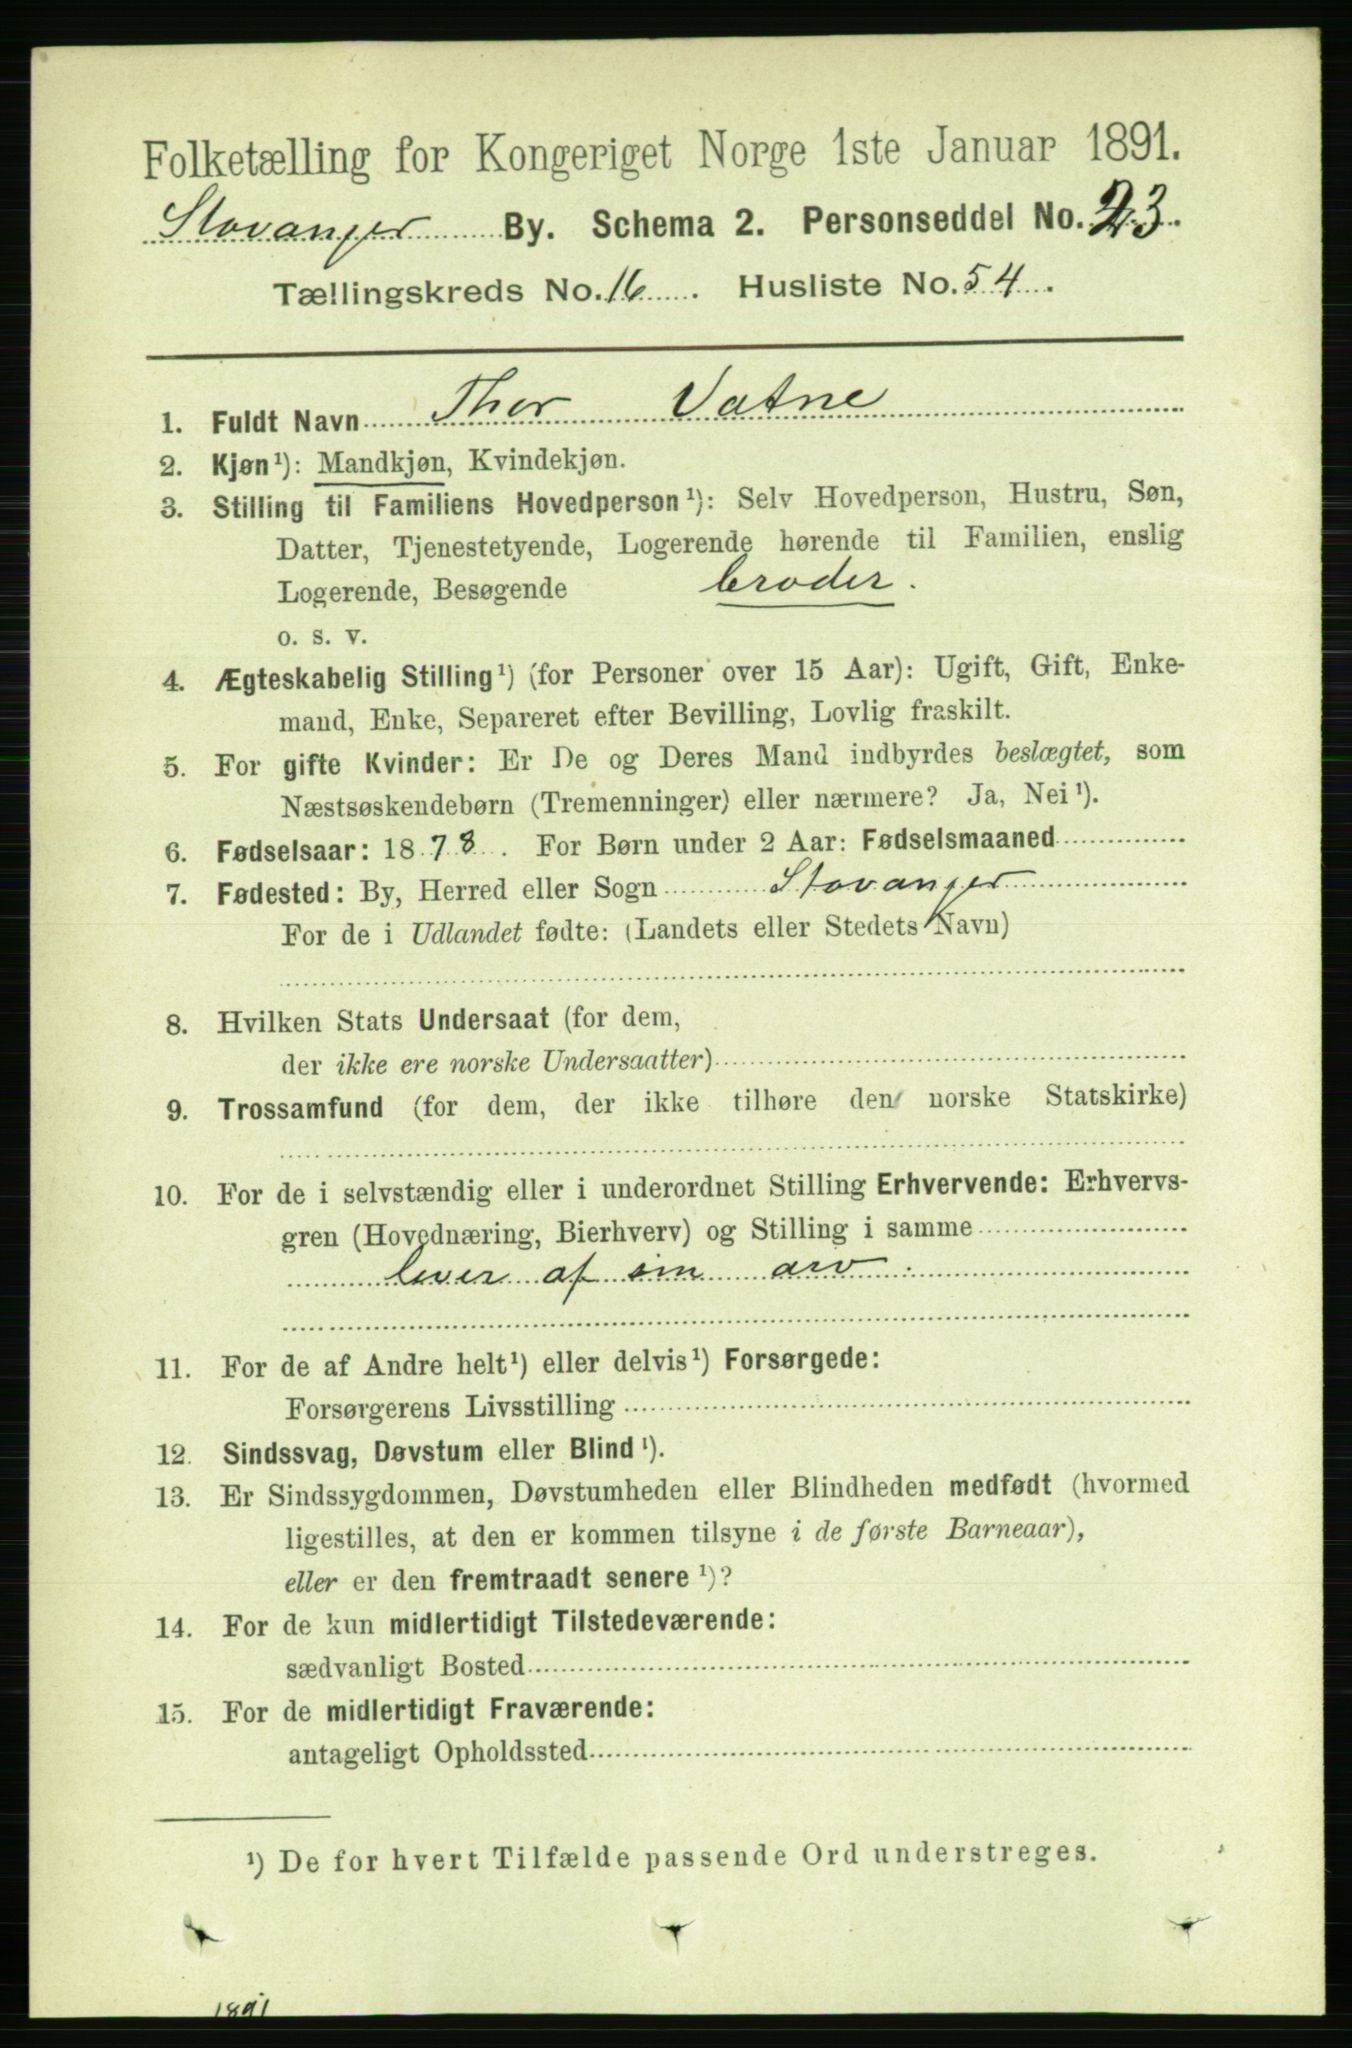 Folketælling for Kongeriget Norge 1ste Januar 1891.
Stavanger By. Schema 2. Personseddel No. 23.
Tællingskreds No. 16. Husliste No. 54.
1. Fuldt Navn Thor Vatne
2. Kjøn¹): Mandkjøn, Kvindekjøn.
3. Stilling til Familiens Hovedperson¹): Selv Hovedperson, Hustru, Søn,
Datter, Tjenestetyende, Logerende hørende til Familien, enslig
Logerende, Besøgende broder.
o. s. v.
4. Ægteskabelig Stilling¹) (for Personer over 15 Aar): Ugift, Gift, Enke-
mand, Enke, Separeret efter Bevilling, Lovlig fraskilt.
5. For gifte Kvinder: Er De og Deres Mand indbyrdes beslægtet, som
Næstsøskendebørn (Tremenninger) eller nærmere? Ja, Nei¹).
6. Fødselsaar: 1878. For Børn under 2 Aar: Fødselsmaaned
7. Fødested: By, Herred eller Sogn Stavanger
For de i Udlandet fødte: (Landets eller Stedets Navn)
8. Hvilken Stats Undersaat (for dem,
der ikke ere norske Undersaatter)
9. Trossamfund (for dem, der ikke tilhøre den norske Statskirke)
10. For de i selvstændig eller i underordnet Stilling Erhvervende: Erhvervs-
gren (Hovednæring, Bierhverv) og Stilling i samme
lever af sin arv.
11. For de af Andre helt¹) eller delvis¹) Forsørgede:
Forsørgerens Livsstilling
12. Sindssvag, Døvstum eller Blind¹).
13. Er Sindssygdommen, Døvstumheden eller Blindheden medfødt (hvormed
ligestilles, at den er kommen tilsyne i de første Barneaar),
eller er den fremtraadt senere¹)?
14. For de kun midlertidigt Tilstedeværende:
sædvanligt Bosted
15. For de midlertidigt Fraværende:
antageligt Opholdssted
¹) De for hvert Tilfælde passende Ord understreges.
1891